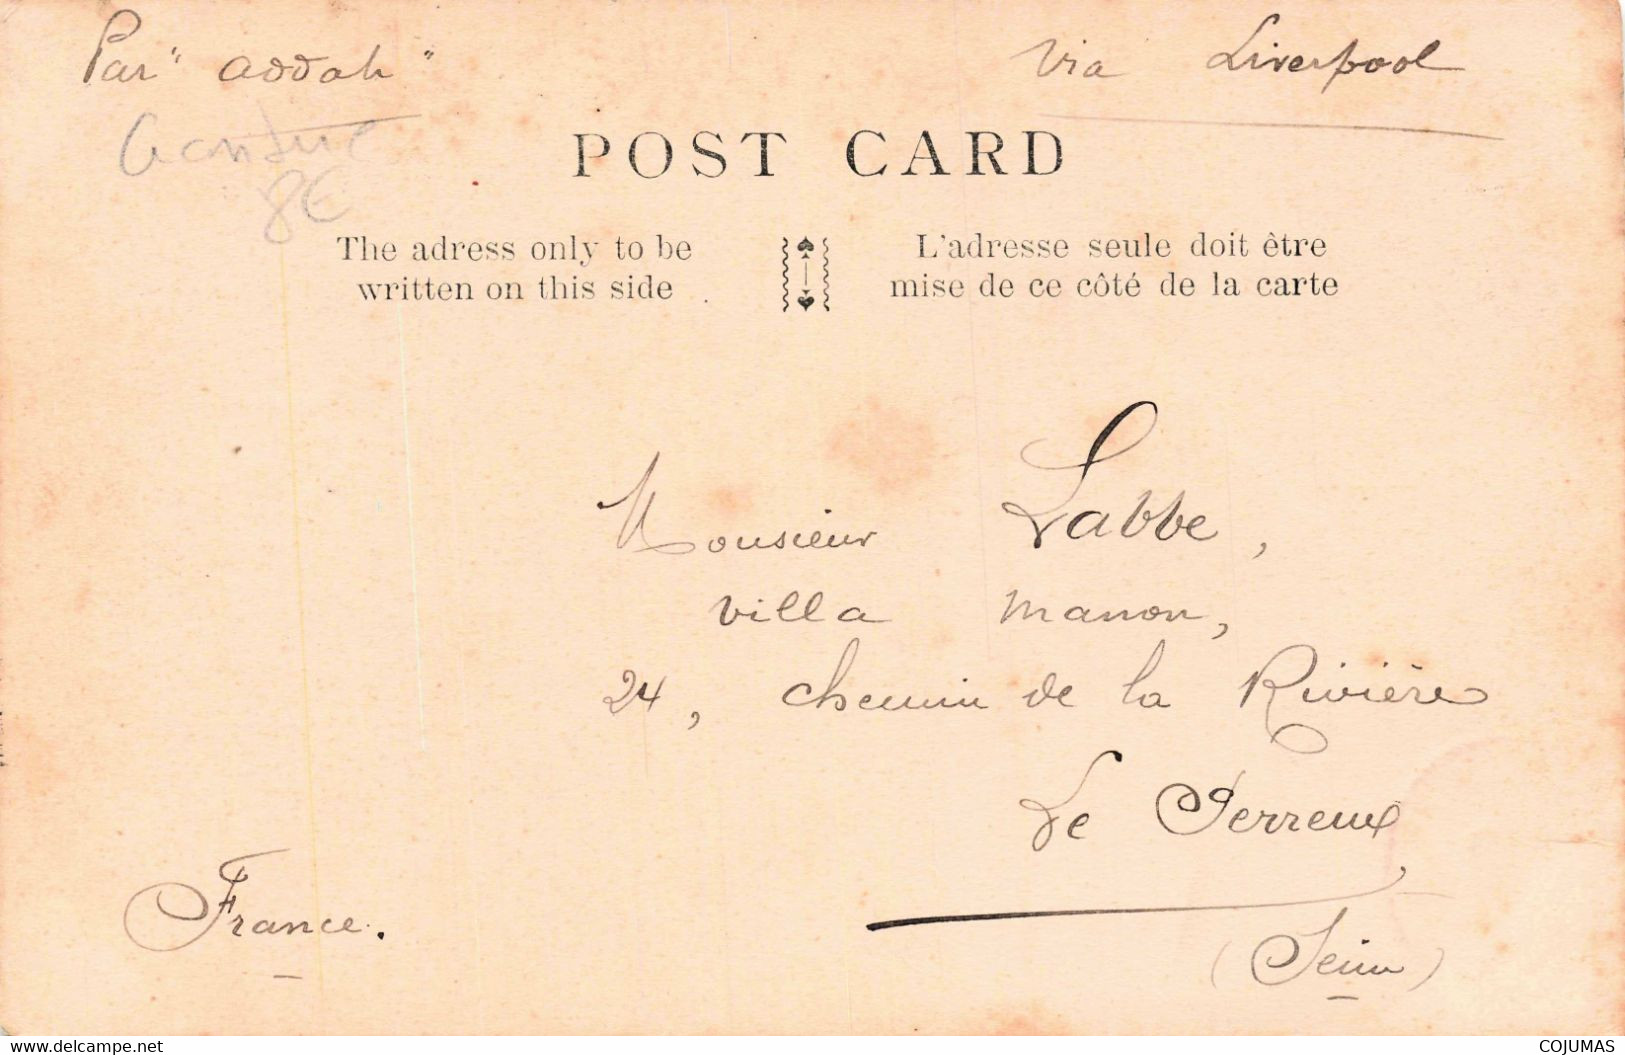 Par "addah"
via Liverpool
8€
POST CARD
The adress only to be
written on this side
L'adresse seule doit être
mise de ce côté de la carte
Monsieur Labbe,
villa manon,
24, chemin de la Rivière
Le Perreux,
(Seine)
France.
www.delcampe.net
COJUMAS